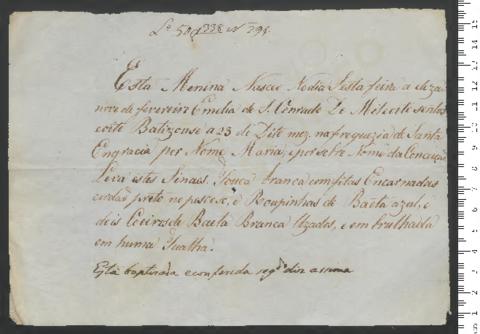 Lº 50 af 338 nº 398.
Esta Menina Nasceo Nodia Sesta feira a deza
nove de fevereiro Emilia de S. Conrado De Mil oito sentos
e oito Batizouse a 23 de Dito mez na freguezia de Santa
Engracia por Nome Maria, e por sobre Nome da Conceição
Leva istes Sinaes. Touca branca com fitas Encarnadas
cordão preto no pescoço, e Roupinhas de Baêta azul, e
dois Coeiros de Baêta Branca Uzados, e em brulhada
em huma Toalha.
Está baptizada e conferida segdo diz assima